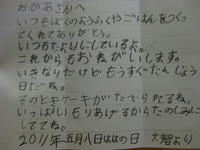 おかあさんへ
いつもぼくのようふくやごはんをつくっ
てくれてありがとう。
いつもたよりにしているよ。
これからもおねがいします。
いきなりだけどもうすぐたんじょう
日だね。
そのときケーキがたべられるね。
いっぱいもりあげるからたのしみに
しててね。
2011年五月八日ははの日 大智より